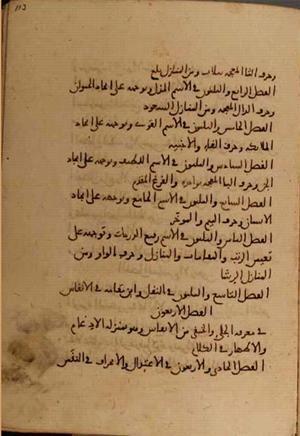 وحرف الثا المعجمه بثلاث ومن المنازل بلع
الفصل الرابع والثلثون في الاسم المذل وتوجهه على ايجاد الحيوان
وحرف الذال المعجمه ومن المنازل السعود
الفصل الخامس والثلثون في الاسم القوى وتوجهه على ايجاد
الملائكه وحرف الفاء والاخبيه
الفصل السادس والثلثون في الاسم اللطيف وتوجهه على ايجاد
الجن وحرف البا المعجمه بواحده والفرغ المقدم
الفصل السابع والثلثون في الاسم الجامع وتوجهه على ايجاد
الانسان وحرف الميم والموخر
الفصل الثامن والثلثون في الاسم رفيع الدرجات وتوجهه على
تعيين الرتب والمقامات والمنازل وحرف الواو ومن
المنازل الرشا
الفصل التاسع والثلثون في النقل واين مقامه في الانفاس
الفصل الاربعون
في معرفه الجلي والخفي من الانفاس وهو بمنزله الادغام
والاظهار في الكلام
الفصل الحادي والاربعون في الاعتدال والانحراف في النفس